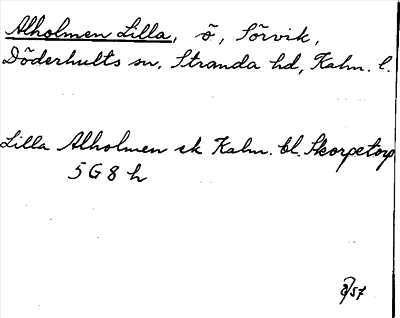 Alholmen Lilla, ö, Sörvik,
Döderhults sn, Stranda hd, Kalm. l.
Lilla Alholmen ek Kalm. bl. Skorpetorp
5 G 8 h